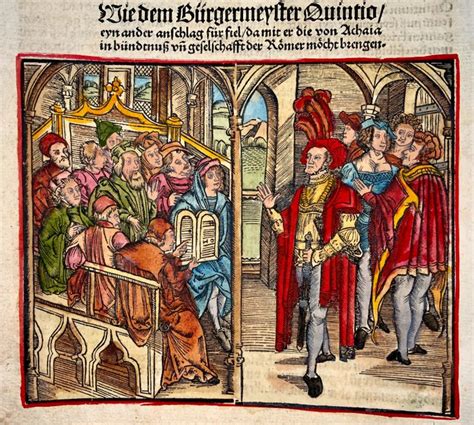 Wie dem Bürgermeyster Quintio/
eyn ander anschlag für fiel/da mit er die von Achaia
in bündtnuß vñ geselschafft der Römer möcht brengen.